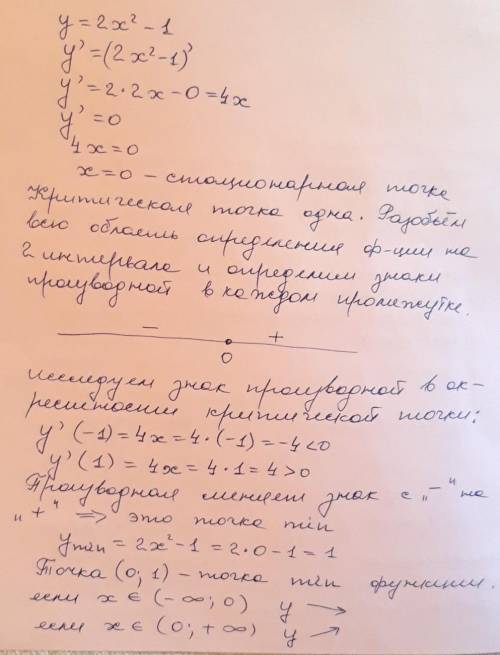 y = 2x² − 1
y' = (2x² − 1)'
y' = 2 · 2x − 0 = 4x
y' = 0
4x = 0
x = 0 – стационарная точка
Критическая точка одна. Разобьём
всю область определения ф-ции на
2 интервала и определим знаки
производной в каждом промежутке.
− +
0
Исследуем знак производной в ок-
рестности критической точки:
y'(-1) = 4x = 4 · (-1) = -4 < 0
y'(1) = 4x = 4 · 1 = 4 > 0
Производная меняет знак с „−" на
„+" ⇒ это точка min
ymin = 2x² − 1 = 2 · 0 − 1 = 1
Точка (0; 1) – точка min функции.
если x ∈ (−∞; 0) y ↘
если x ∈ (0; +∞) y ↗